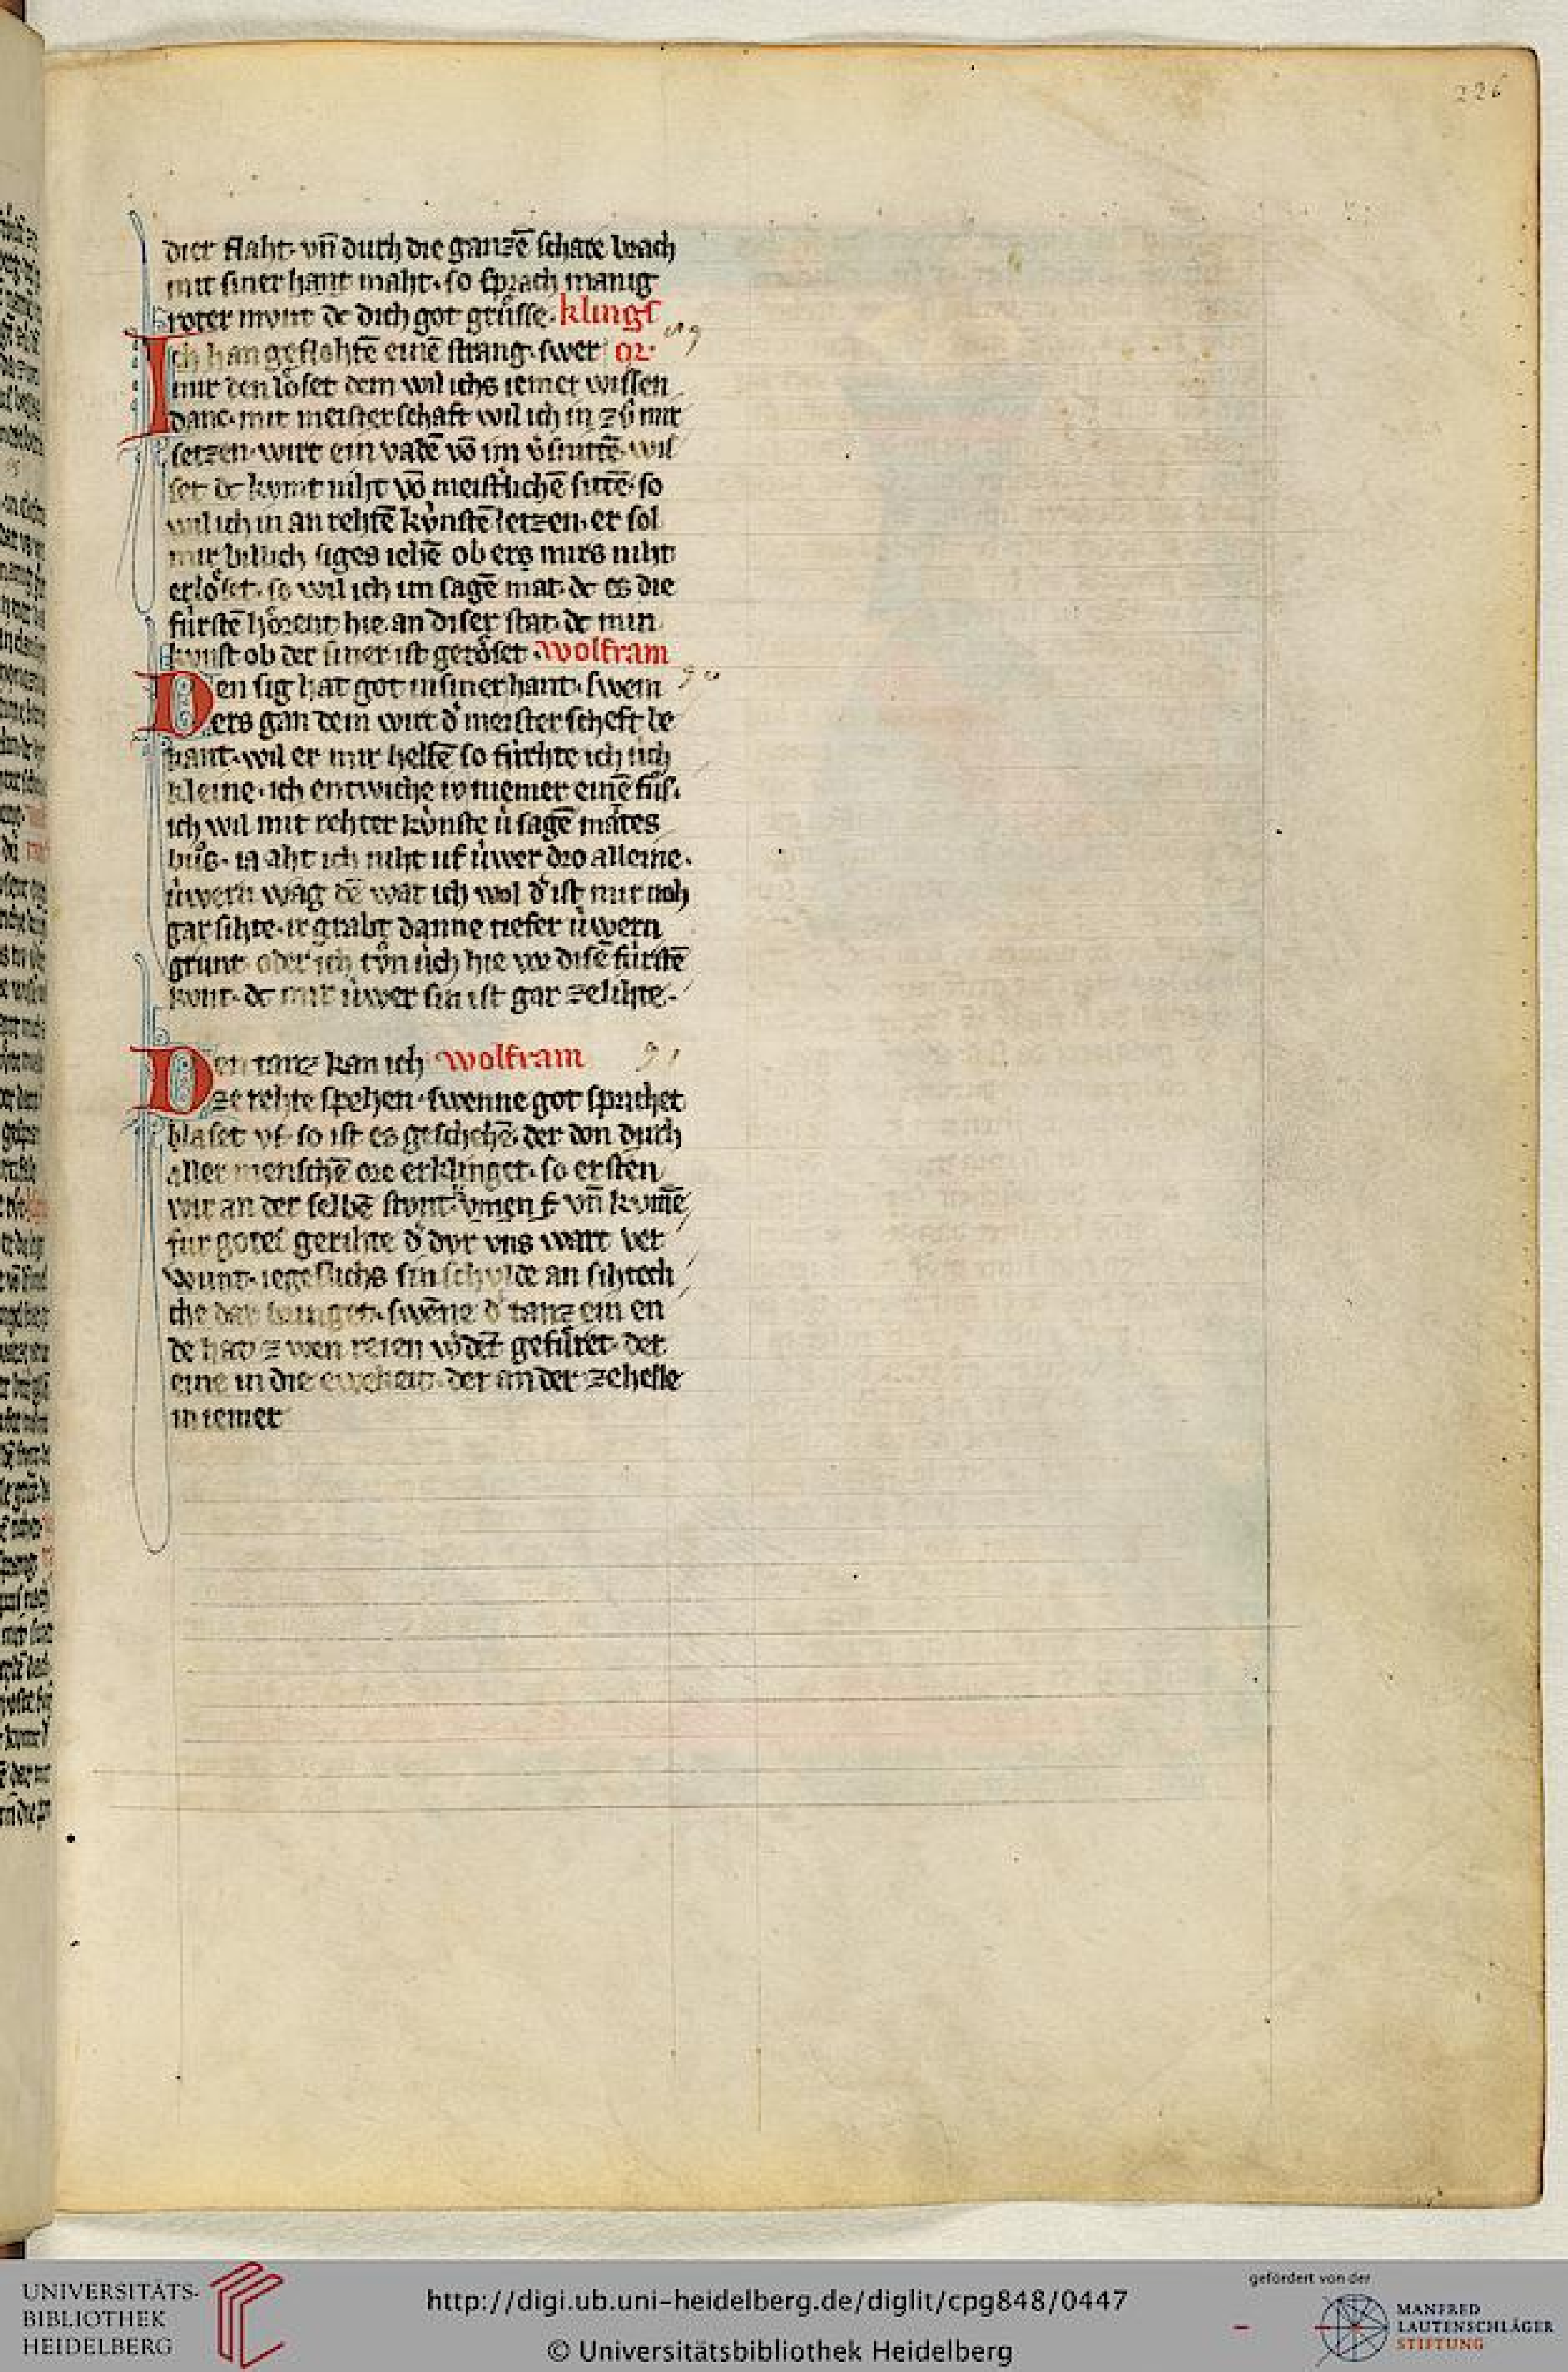 226
dıer ſlaht· vn̄ durh die ganzē ſchare brach
mıt ſıner hant maht· ſo ſprach manıg
roter mvnt dc dıch got grͤuſſe· klıngſ
Ich han geflohtē eınē ſtrang· ſwer or·
mır den lͦoſet dem wıl ıchs ıemer wıſſen
danc· mıt meıſterſchaft wıl ıch ın zͦv mır
ſetzen· wırt eın vadē vō ım v̉ſnıttē· wıſ
ſet dc kvmt nıht vō meıſt̉lıchē ſıttē· ſo
wıl ıch ın an rehtē kv́nſtē letzen· er ſol
mır bıllıch ſıges ıehē ob ers mırs nıht
erlͦoſet· ſo wıl ıch ım ſagē mat· dc es dıe
fúrſtē hͦorent hıe an dıſer ſtat· dc mın
kvnſt ob der ſıner ıſt gerͦoſet· wolfram
Den ſıg hat got ın ſıner hant· ſwem
ers gan dem wırt d̉ meıſterſcheft be
kant· wıl er mır helfē ſo fúrhte ıch úch
kleıne· ıch entwıche ıv nıemer eınē fͦuſ·
ıch wıl mıt rehter kv́nſte ú ſagē mates
bͦus· ıa aht ıch nıht uf úwer dro alleıne·
úwern wag dē wat ıch wol d̉ ıſt mır noh
gar ſıhte· ır grabt danne tıefer úwern
grunt· oder ıch tͦvn úch hıe vor dıſē fúrſtē
kvnt· dc mır úwer ſın ıſt gar ze lıhte·
Den tanz kan ıch wolfram 91
ze rehte ſpehen· ſwenne got ſprıchet
blaſet vf· ſo ıſt es geſchehē· der don durh
aller menſchē ore erklınget· ſo erſten
wır an der ſelbē ſtvnt· vn̄ kvmē
fúr gotes gerıhte d̉ dvr vns wart ver
wunt· ıegeſlıchs ſın ſchvlde an ſıhtech
che dar brınget· ſwēne d̉ tanz eın en
de hat zwen reıen w̉det gefͤuret· der
eıne ın dıe ewekeıt· der ander ze helle
ın ıemer
UNIVERSITÄTS-
BIBLIOTHEK
HEIDELBERG
http://digi.ub.uni-heidelberg.de/diglit/cpg848/0447
© Universitätsbibliothek Heidelberg
gefördert von der
MANFRED
LAUTENSCHLÄGER
STIFTUNG